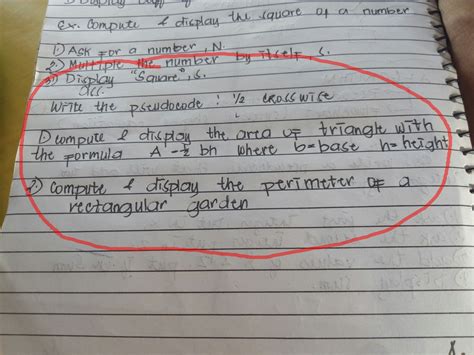 Ex. Compute & display the square of a number
1) Ask for a number, N.
2) Multiple the number by itself, S.
3) Display "Square", S.
Write the pseudocode : 1/2 crosswise
1) compute & display the area of triangle with
the formula A = 1/2 bh where b=base h=height
2) Compute & display the perimeter of a
rectangular garden